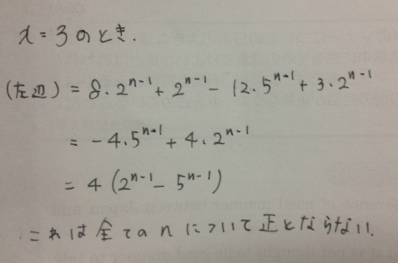 x=3のとき.
(左辺) = 8・2^{n-1} + 2^{n-1} - 12・5^{n-1} + 3・2^{n-1}
= -4・5^{n-1} + 4・2^{n-1}
= 4(2^{n-1} - 5^{n-1})
これは全てのnについて正とならない.